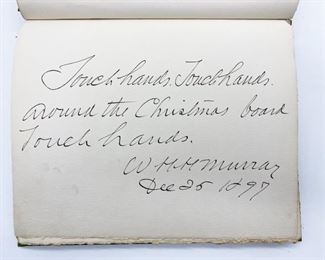 Touch hands. Touch hands.
around the Christmas board
Touch hands.
W. H. H. Murray
Dec 25 1897